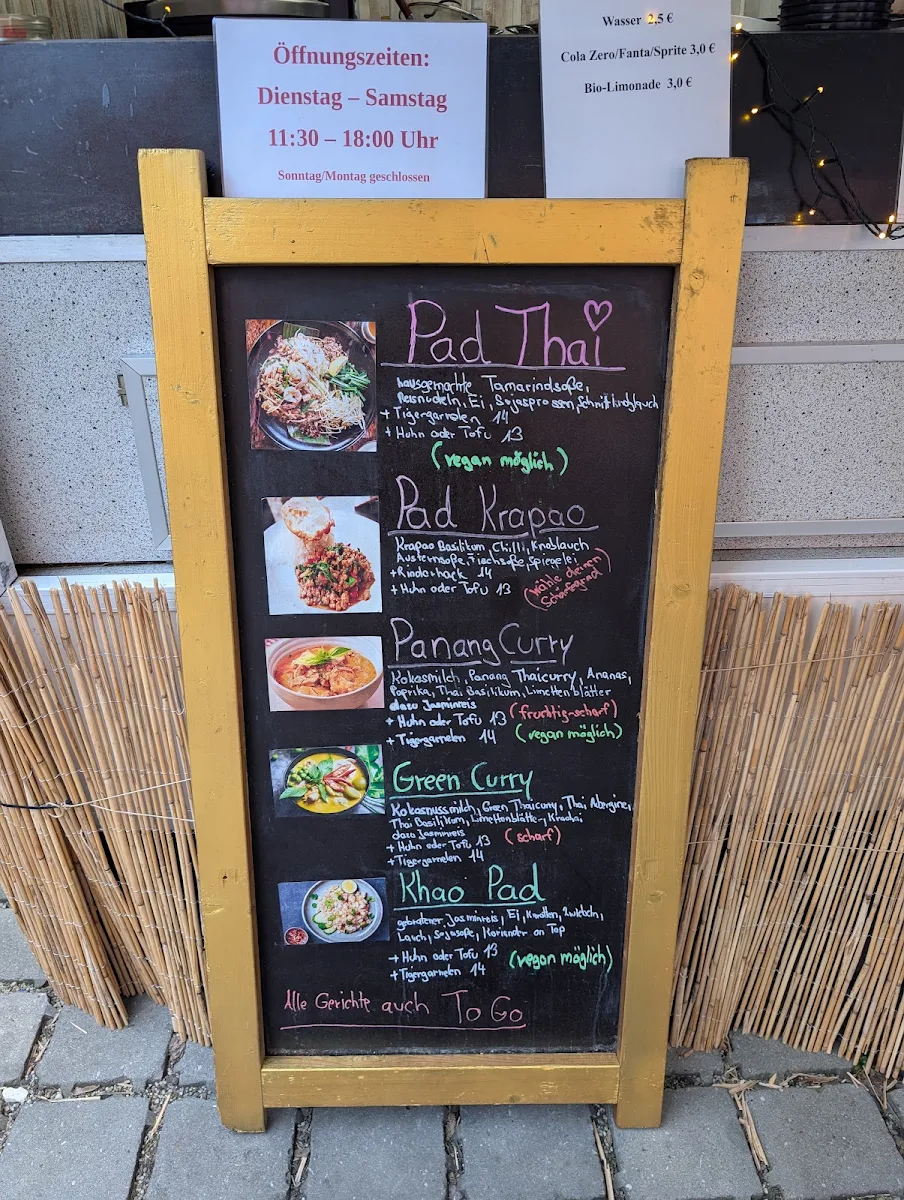 Öffnungszeiten:
Dienstag – Samstag
11:30 – 18:00 Uhr
Sonntag/Montag geschlossen
Wasser 2,5 €
Cola Zero/Fanta/Sprite 3,0 €
Bio-Limonade 3,0 €
Pad Thai
hausgemachte Tamarindsoße,
Reisnudeln, Ei, Sojasprossen, Schnittknoblauch
+ Tigergarnelen 14
+ Huhn oder Tofu 13
(vegan möglich)
Pad Krapao
Krapao Basilikum, Chilli, Knoblauch
Austernsoße, Fischsoße, Spiegelei
+ Rinderhack 14
+ Huhn oder Tofu 13
(wähle deinen
Schärfegrad)
Panang Curry
Kokosmilch, Panang Thaicurry, Ananas,
Paprika, Thai Basilikum, Limettenblätter
dazu Jasminreis
+ Huhn oder Tofu 13 (fruchtig-scharf)
+ Tigergarnelen 14 (vegan möglich)
Green Curry
Kokosnussmilch, Green Thaicurry, Thai Abergine,
Thai Basilikum, Limettenblätter, Krachai
dazu Jasminreis
+ Huhn oder Tofu 13 (scharf)
+ Tigergarnelen 14
Khao Pad
gebratener Jasminreis, Ei, Karotten, Zwiebeln,
Lauch, Sojasoße, Koriander on Top
+ Huhn oder Tofu 13
+ Tigergarnelen 14 (vegan möglich)
Alle Gerichte auch To Go